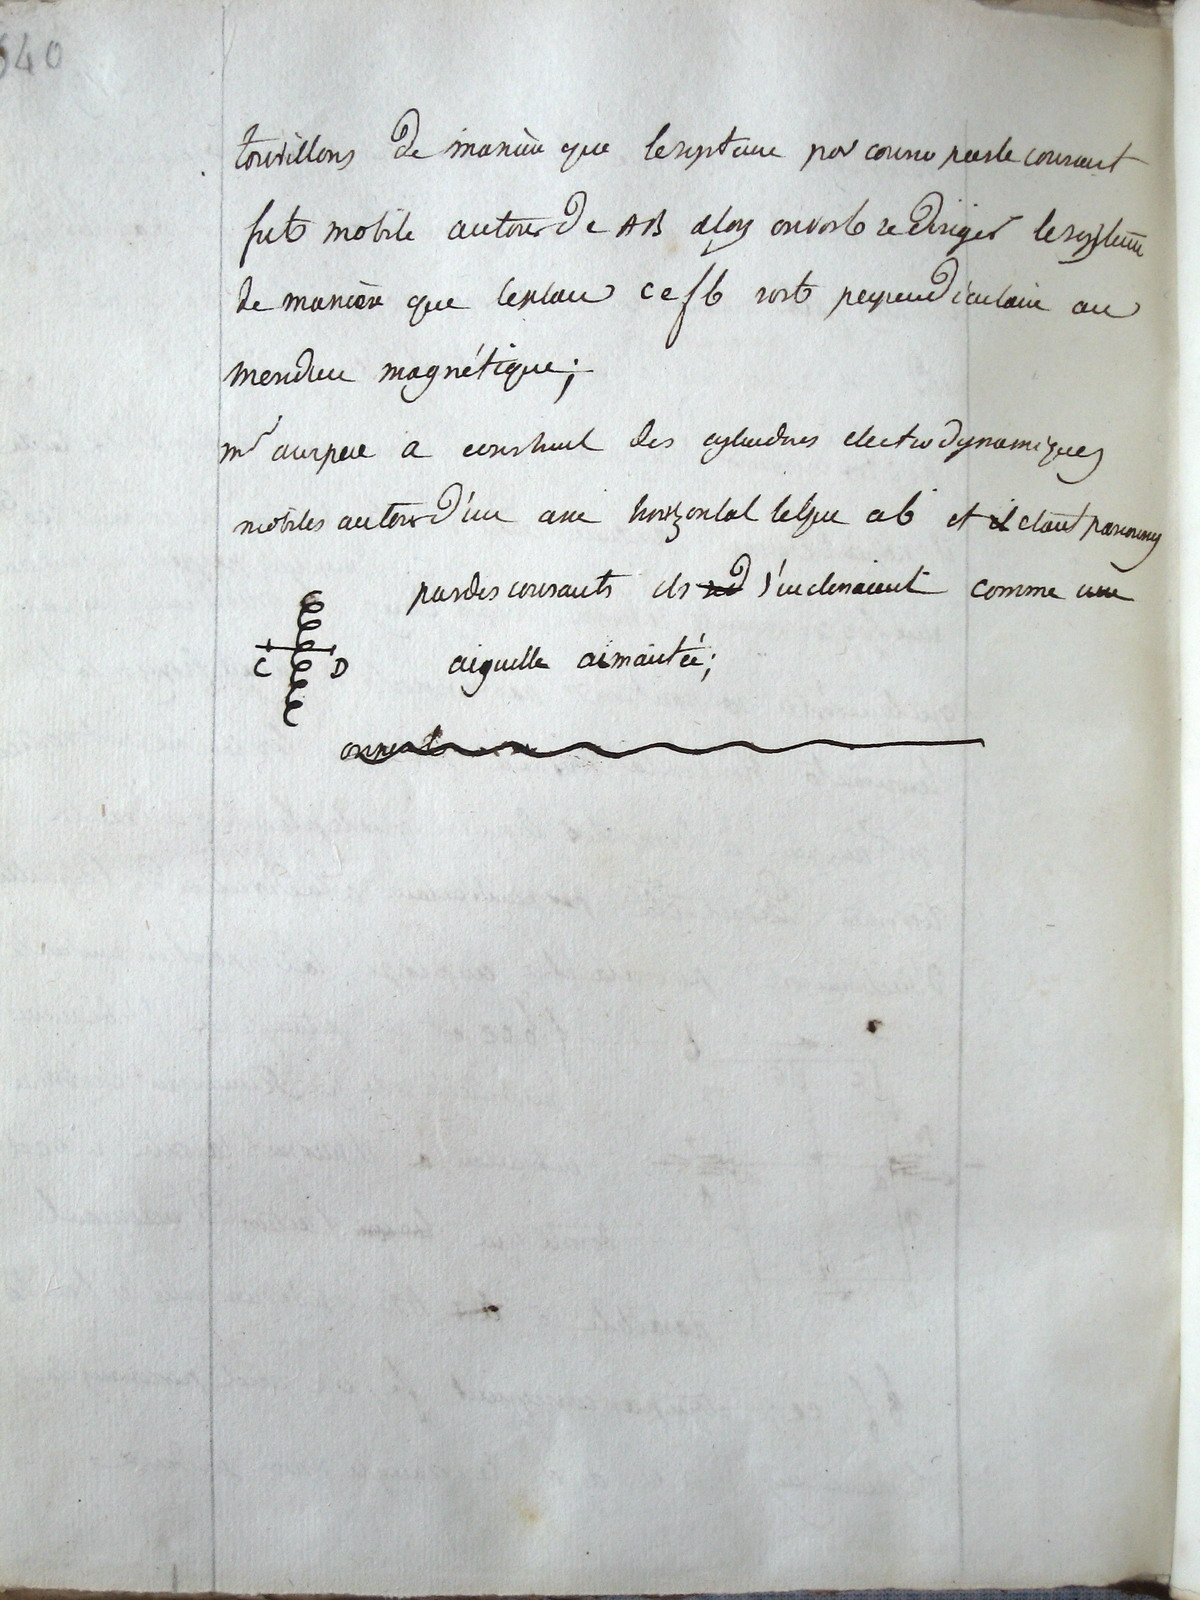 640
tourillons de manière que le systeme par couru par le courant
fut mobile autour de AB alors on voit se diriger le systeme
de manière que le plan cefb soit perpendiculaire au
meridien magnétique;
mr ampere a construit des cylindres electrodynamiques
mobiles autour d'un axe horizontal tel que ab et il etant parcourus
par des courants ils s'inclinaient comme une
aiguille aimantée;
C D